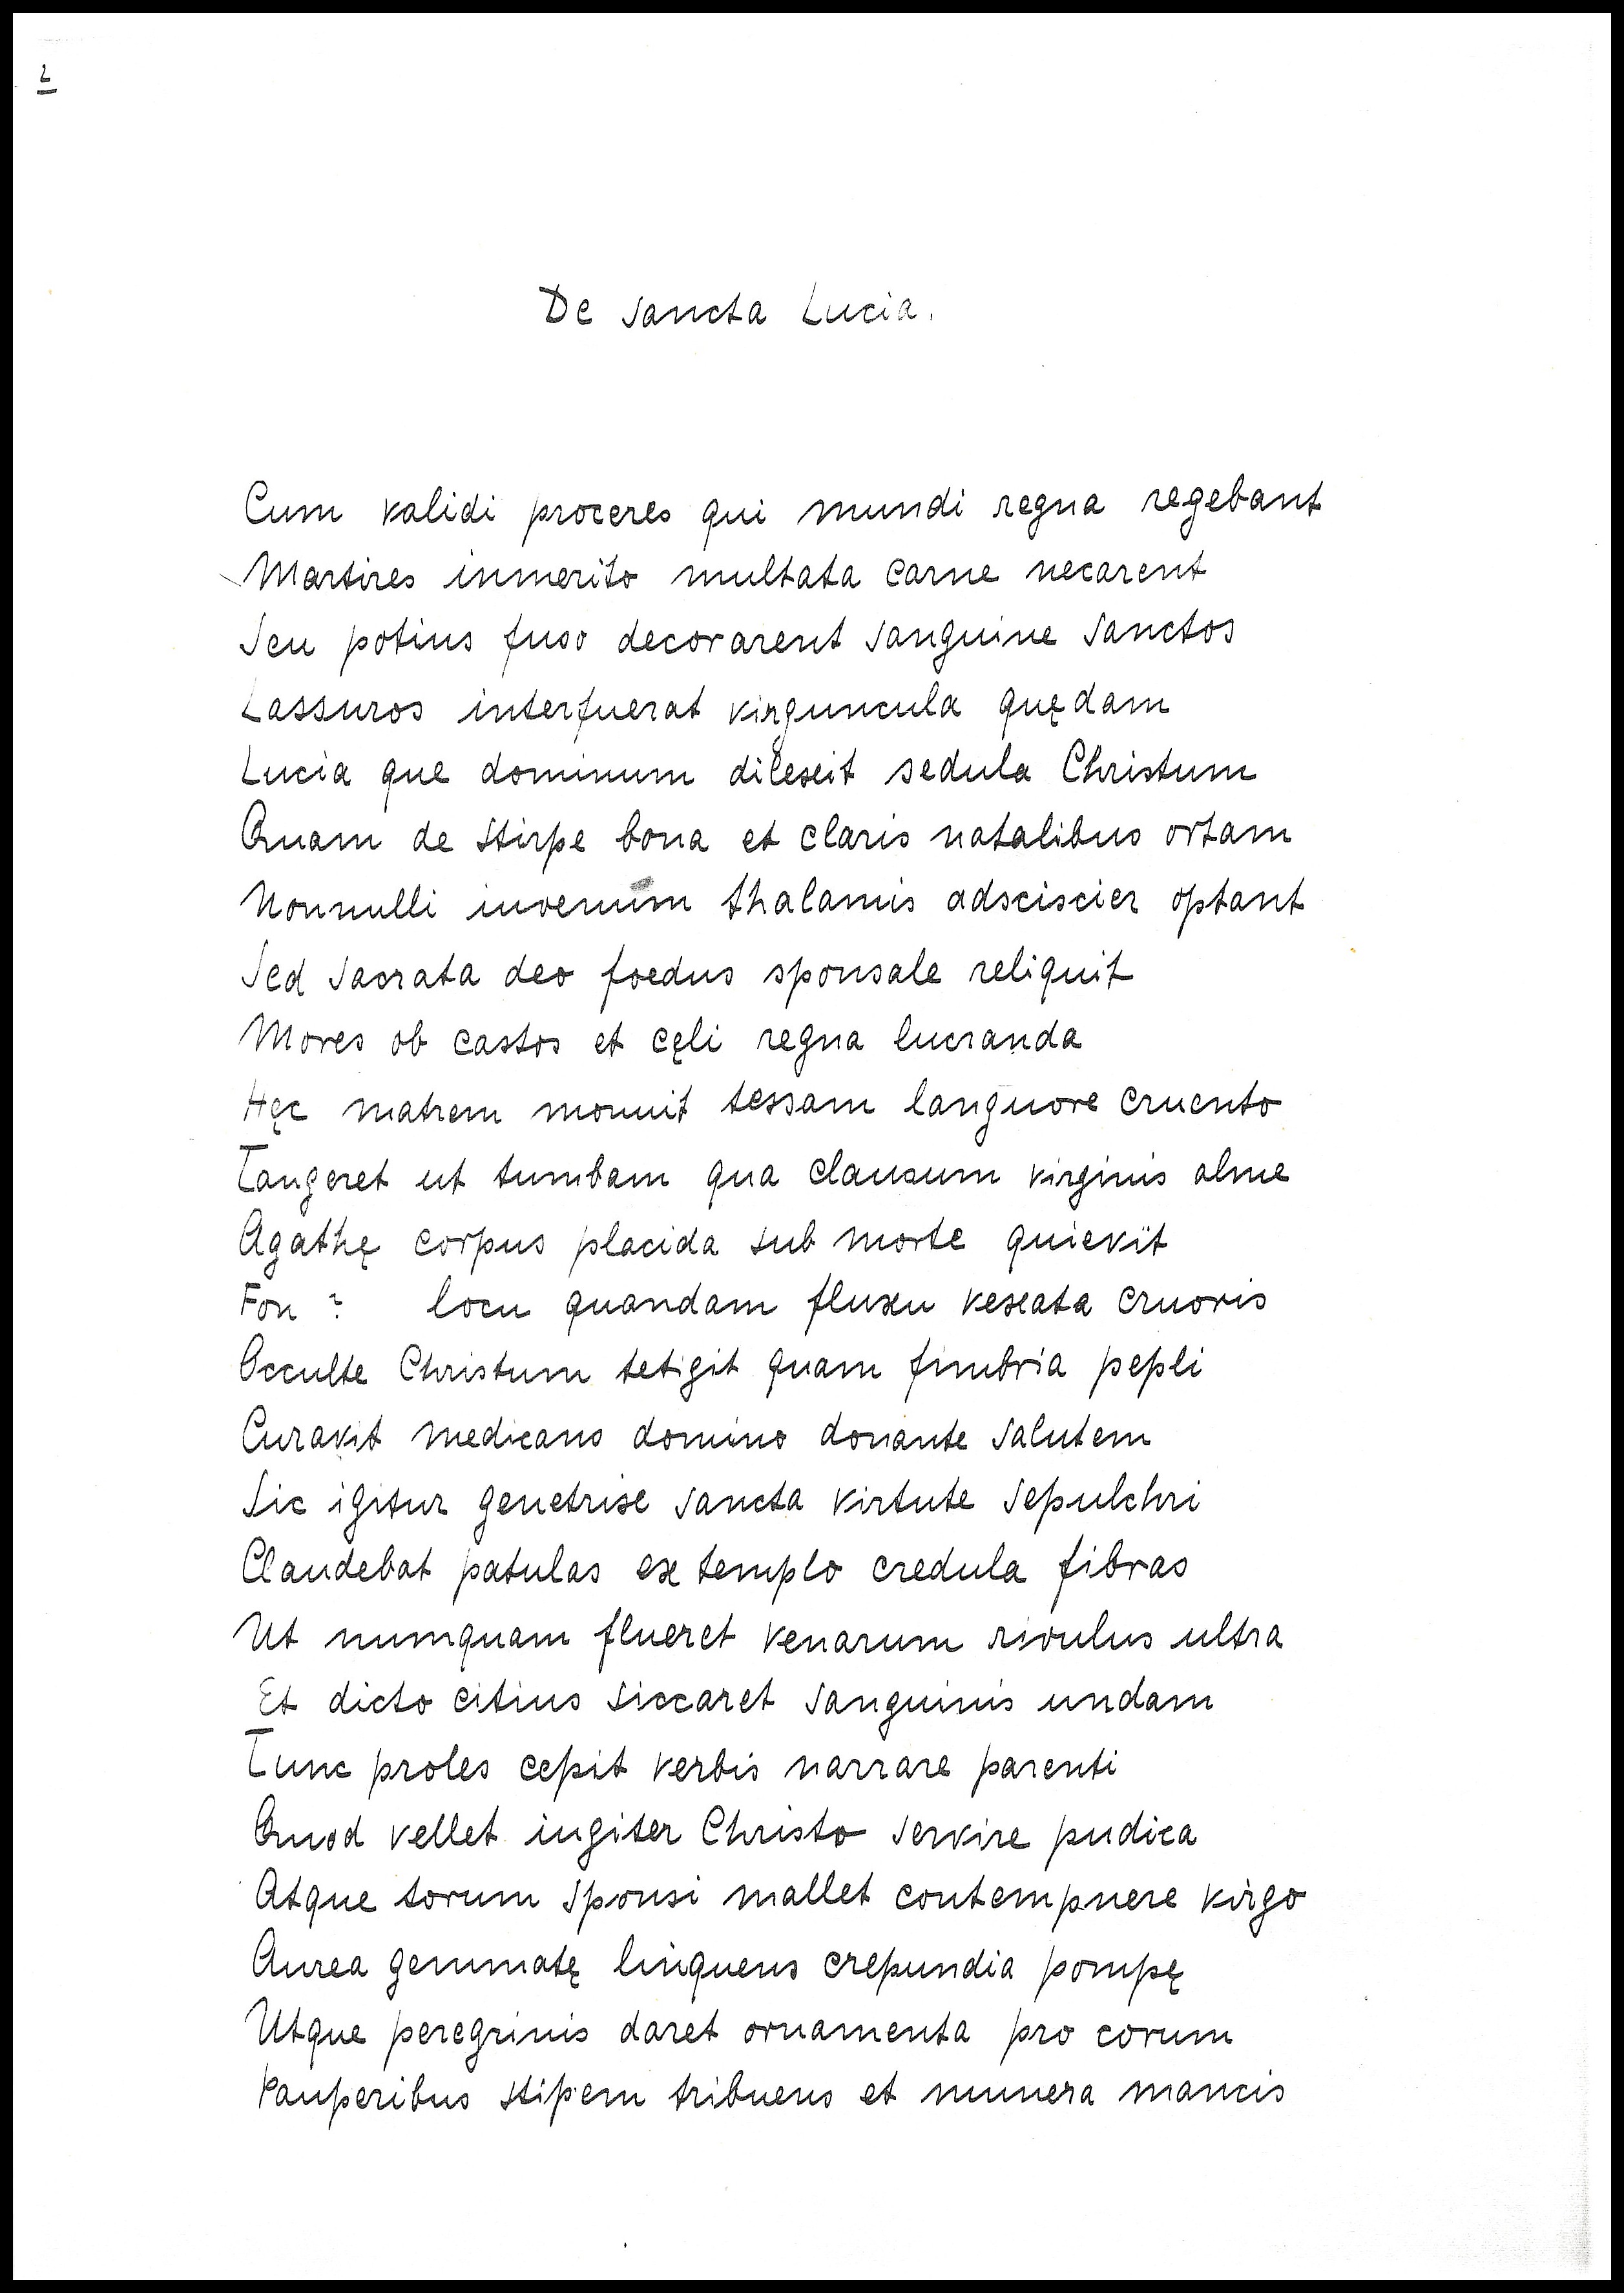 2
De sancta Lucia.
Cum validi proceres qui mundi regna regebant
Martires inmerito multata carne necarent
Seu potius fuso decorarent sanguine sanctos
Lassuros interfuerat virguncula quędam
Lucia que dominum dilexit sedula Christum
Quam de stirpe bona et claris natalibus ortam
Nonnulli iuvenum thalamis adsciscier optant
Sed sacrata deo foedus sponsale reliquit
Mores ob castos et cęli regna lucranda
Hęc matrem monuit fessam languore cruento
Tangeret ut tumbam qua clausum virginis alme
Agathę corpus placida sub morte quievit
Fon ? locu quandam fluxu vexata cruoris
Occulte Christum tetigit quam fimbria pepli
Curavit medicans domino donante salutem
Sic igitur genetrix sancta virtute sepulchri
Claudebat patulas ex templo credula fibras
Ut numquam flueret venarum rivulus ultra
Et dicto citius siccaret sanguinis undam
Tunc proles cepit verbis narrare parenti
Quod vellet iugiter Christo servire pudica
Atque torum sponsi mallet contempnere virgo
Aurea gemmatę linquens crepundia pompę
Utque peregrinis daret ornamenta pro eorum
Pauperibus stipem tribuens et munera mancis